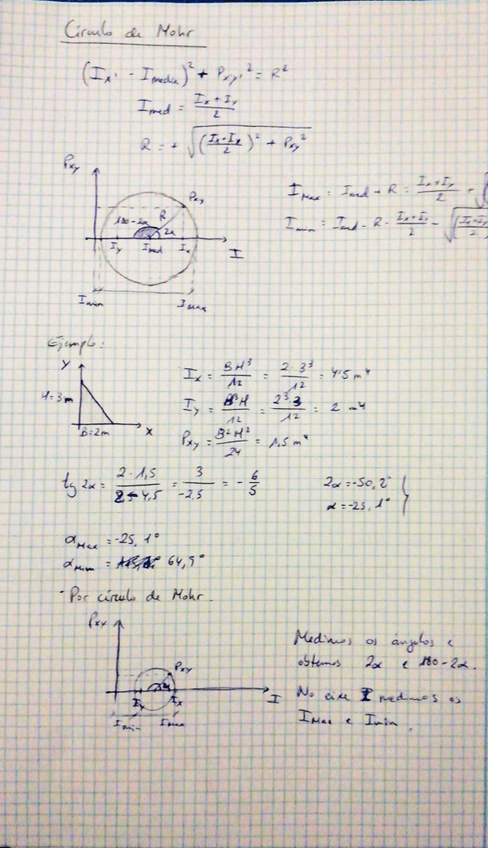 Círculo de Mohr
(Ix' - Imedia)² + Pxy'² = R²
Imed = (Ix + Iy)/2
R = + √(((Ix+Iy)/2)² + Pxy²)
Pxy
Pxy
180-2α R 2α
Iy Imed Ix I
Imin Imax
IMax = Imed + R = (Ix+Iy)/2 + √
Imin = Imed - R = (Ix+Iy)/2 - √((Ix+Iy)/2
Ejemplo:
Y
H=3m
B=2m X
Ix = BH³/12 = 2·3³/12 = 4'5 m⁴
Iy = B³H/12 = 2³3/12 = 2 m⁴
Pxy = B²H²/24 = 1,5 m⁴
tg 2α = 2·1,5/(2-4,5) = 3/-2,5 = -6/5
2α = -50,2°
α = -25,1°
αMax = -25,1°
αMin = 64,9°
- Por círculo de Mohr.
Pxy
Pxy
Iy Ix I
Imin Imax
Medimos os angulos e
obtemos 2α e 180-2α.
No eixe I medimos os
IMax e Imin.